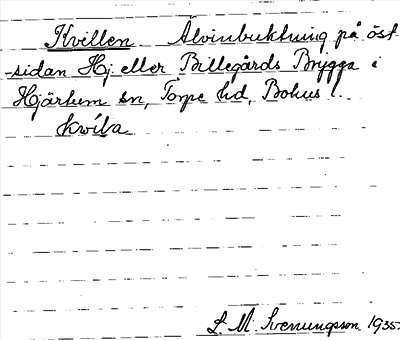 Kvillen. Älvinbuktning på öst
-sidan Hj. eller Billegårds Brygga i
Hjärtum sn, Torpe hd, Bohus l.
kwíla
L. M. Svenungsson 1935.